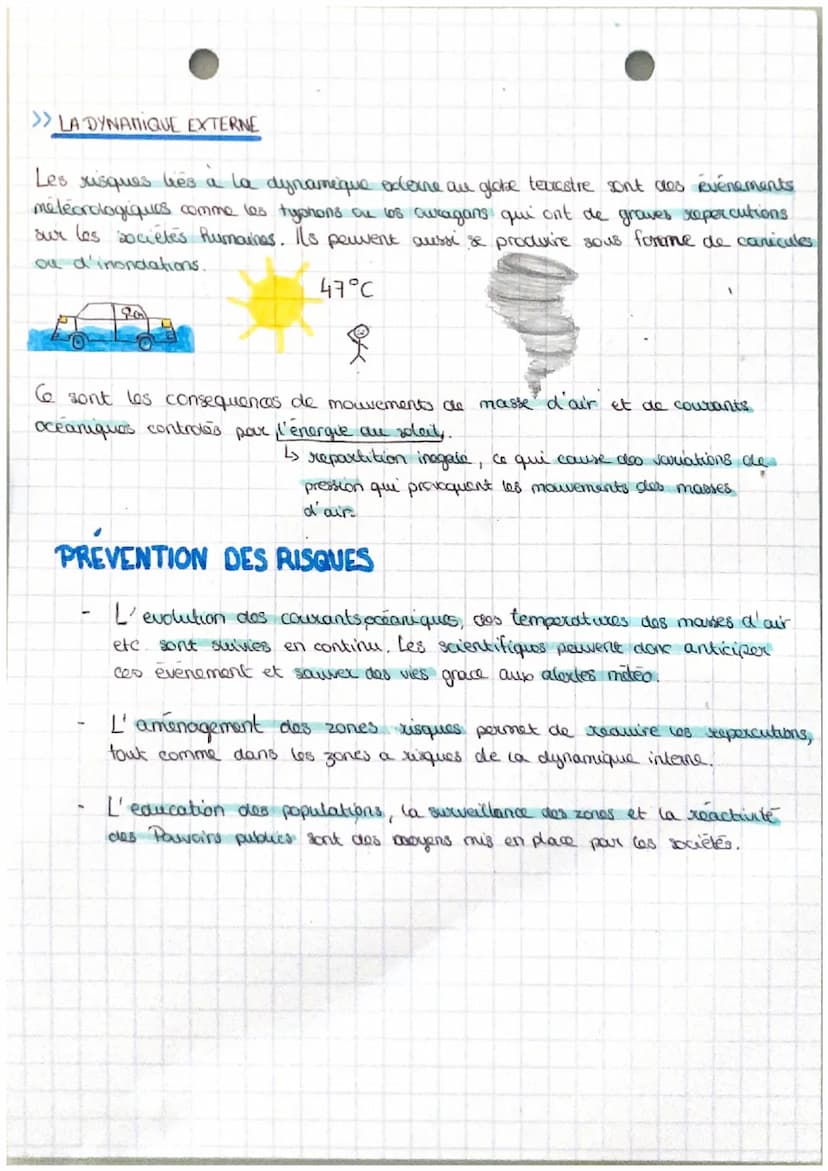 >> LA DYNAMIQUE EXTERNE
Les risques liés à la dynamique externe au globe terrestre sont des événements
météorologiques comme les typhons ou les ouragans qui ont de graves repercutions
sur les sociétés humaines. Ils peuvent aussi se produire sous forme de canicules
ou d'inondations.
47°C
Ce sont les consequences de mouvements de masse d'air et de courants
océaniques controlés par l'énergie du soleil.
↳ repartition inegale, ce qui cause des variations de
pression qui provoquent les mouvements des masses
d'air.
PRÉVENTION DES RISQUES
- L'evolution des courants océaniques, des temperatures des masses d'air
etc. sont suivies en continu. Les scientifiques peuvent donc anticiper
ces événement et sauver des vies grace aux alertes météo.
- L'aménagement des zones risques permet de reduire les repercutions,
tout comme dans les zones a risques de la dynamique interne.
- L'education des populations, la surveillance des zones et la réactivité
des Pouvoirs publics sont des moyens mis en place par les sociétés.